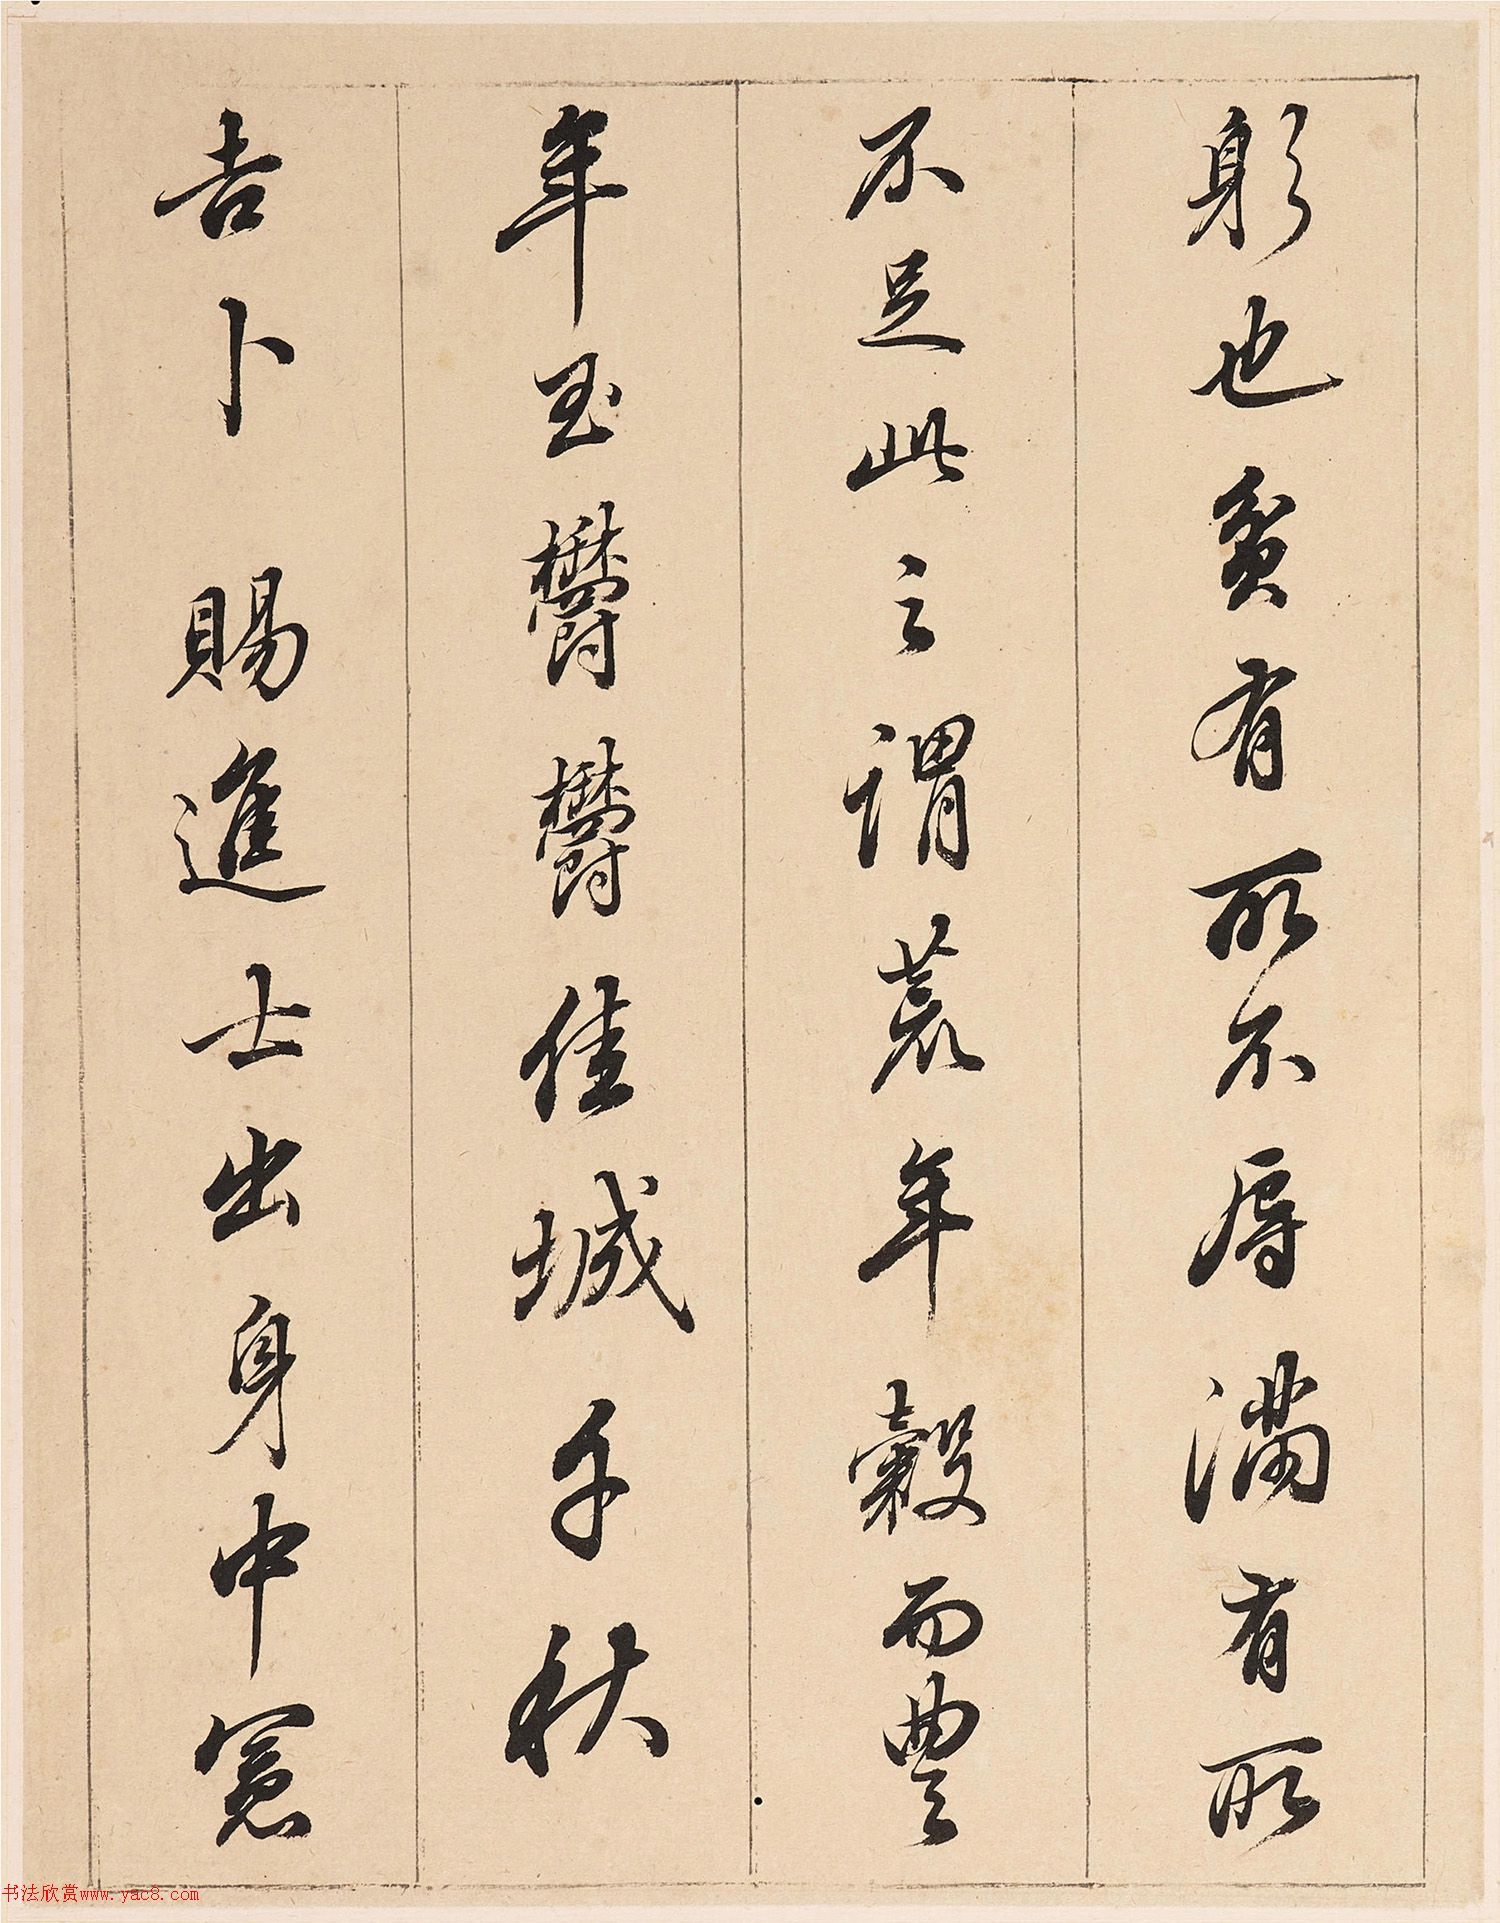 躬也貧有所不辱滿有所
不足此之謂荒年穀而豐
年玉鬱鬱佳城千秋
吉卜賜進士出身中憲
书法欣赏www.yac8.com